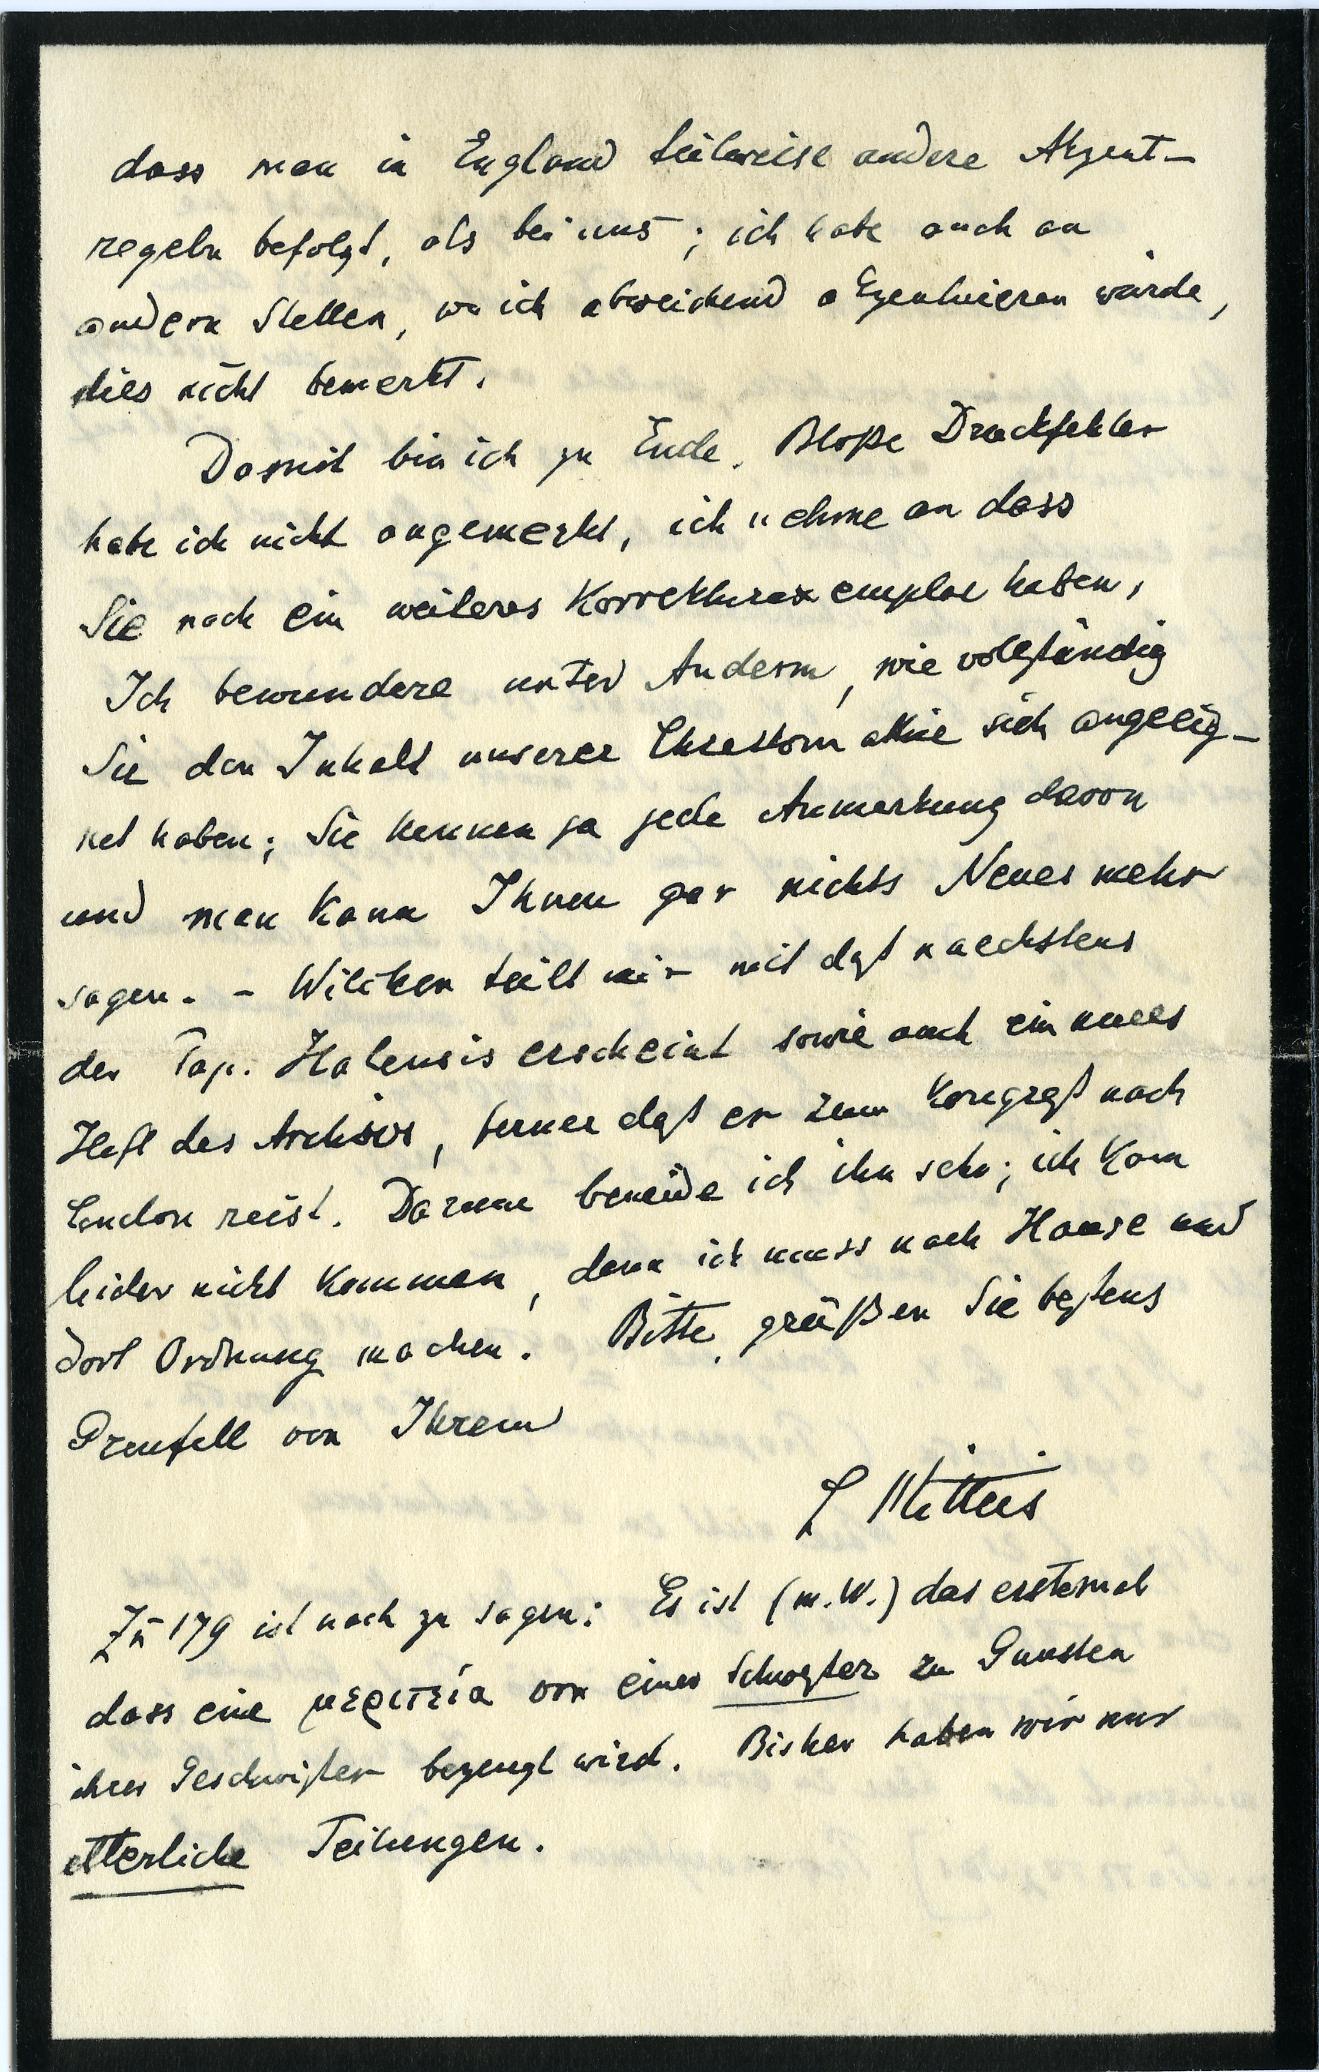 dass man in England teilweise andere Akzent-
regeln befolgt, als bei uns; ich habe auch an
andern Stellen, wo ich abweichend akzentuieren würde,
dies nicht bemerkt.
Damit bin ich zu Ende. Bloße Druckfehler
habe ich nicht angemerkt, ich nehme an dass
Sie noch ein weiteres Korrekturexemplar haben,
Ich bewundere unter Anderm, wie vollständig
Sie den Inhalt unserer Chrestomathie sich angeeig-
net haben; Sie kennen ja jede Anmerkung davon
und man kann Ihnen gar nichts Neues mehr
sagen. - Wilcken teilt mir mit daß naechstens
der Pap. Halensis erscheint sowie auch ein neues
Heft des Archivs, ferner daß er zum Kongreß nach
London reist. Darum beneide ich ihn sehr; ich kann
leider nicht kommen, denn ich muss nach Hause und
dort Ordnung machen. Bitte, grüßen Sie bestens
Grenfell von Ihrem
L Mitteis
Zu 179 ist noch zu sagen: Es ist (m.W.) das erstemal
dass eine μεριτεία von einer Schwester zu Gunsten
ihrer Geschwister bezeugt wird. Bisher haben wir nur
elterliche Teilungen.